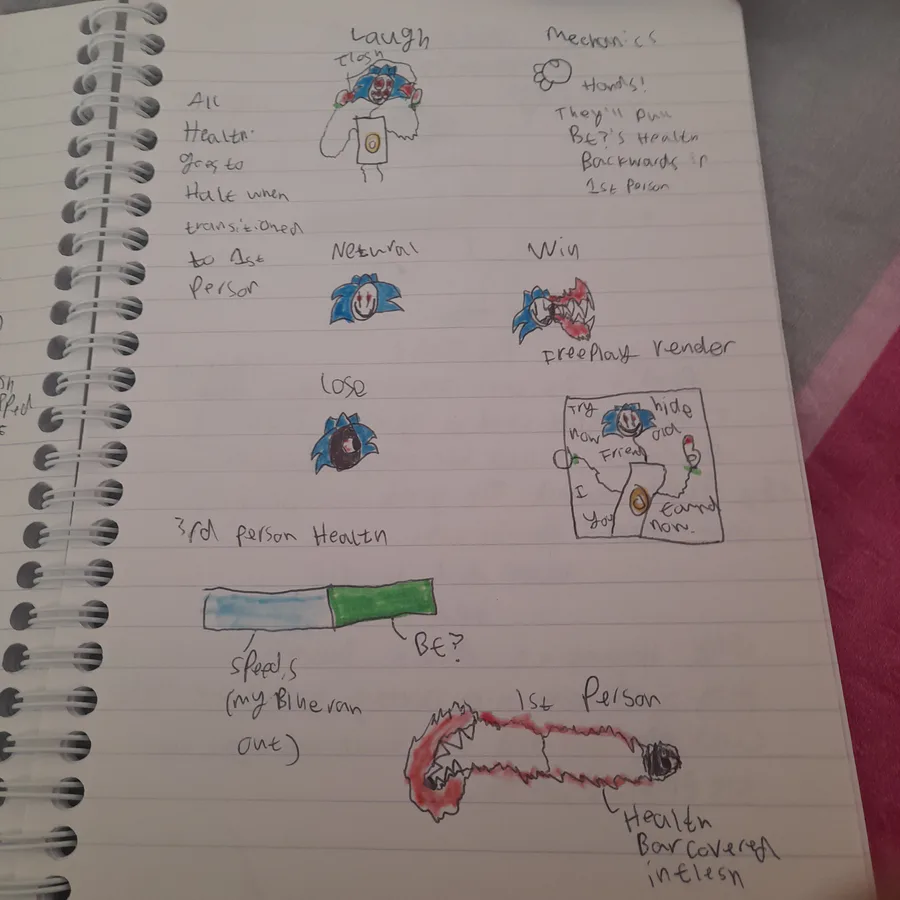 Laugh
Flosh
All
Health
goes to
Half when
transitioned
to 1st
Person
Mechanics
Hands!
They'll Pull
BF?'s Health
Backwards in
1st Person
Netural
Win
Lose
FreePlay render
Try hide
now old
Friend
I
You Found
now.
3rd person Health
BF?
Speed,s
(my Blue ran
out)
1st Person
Health
Bar covered
in flesh